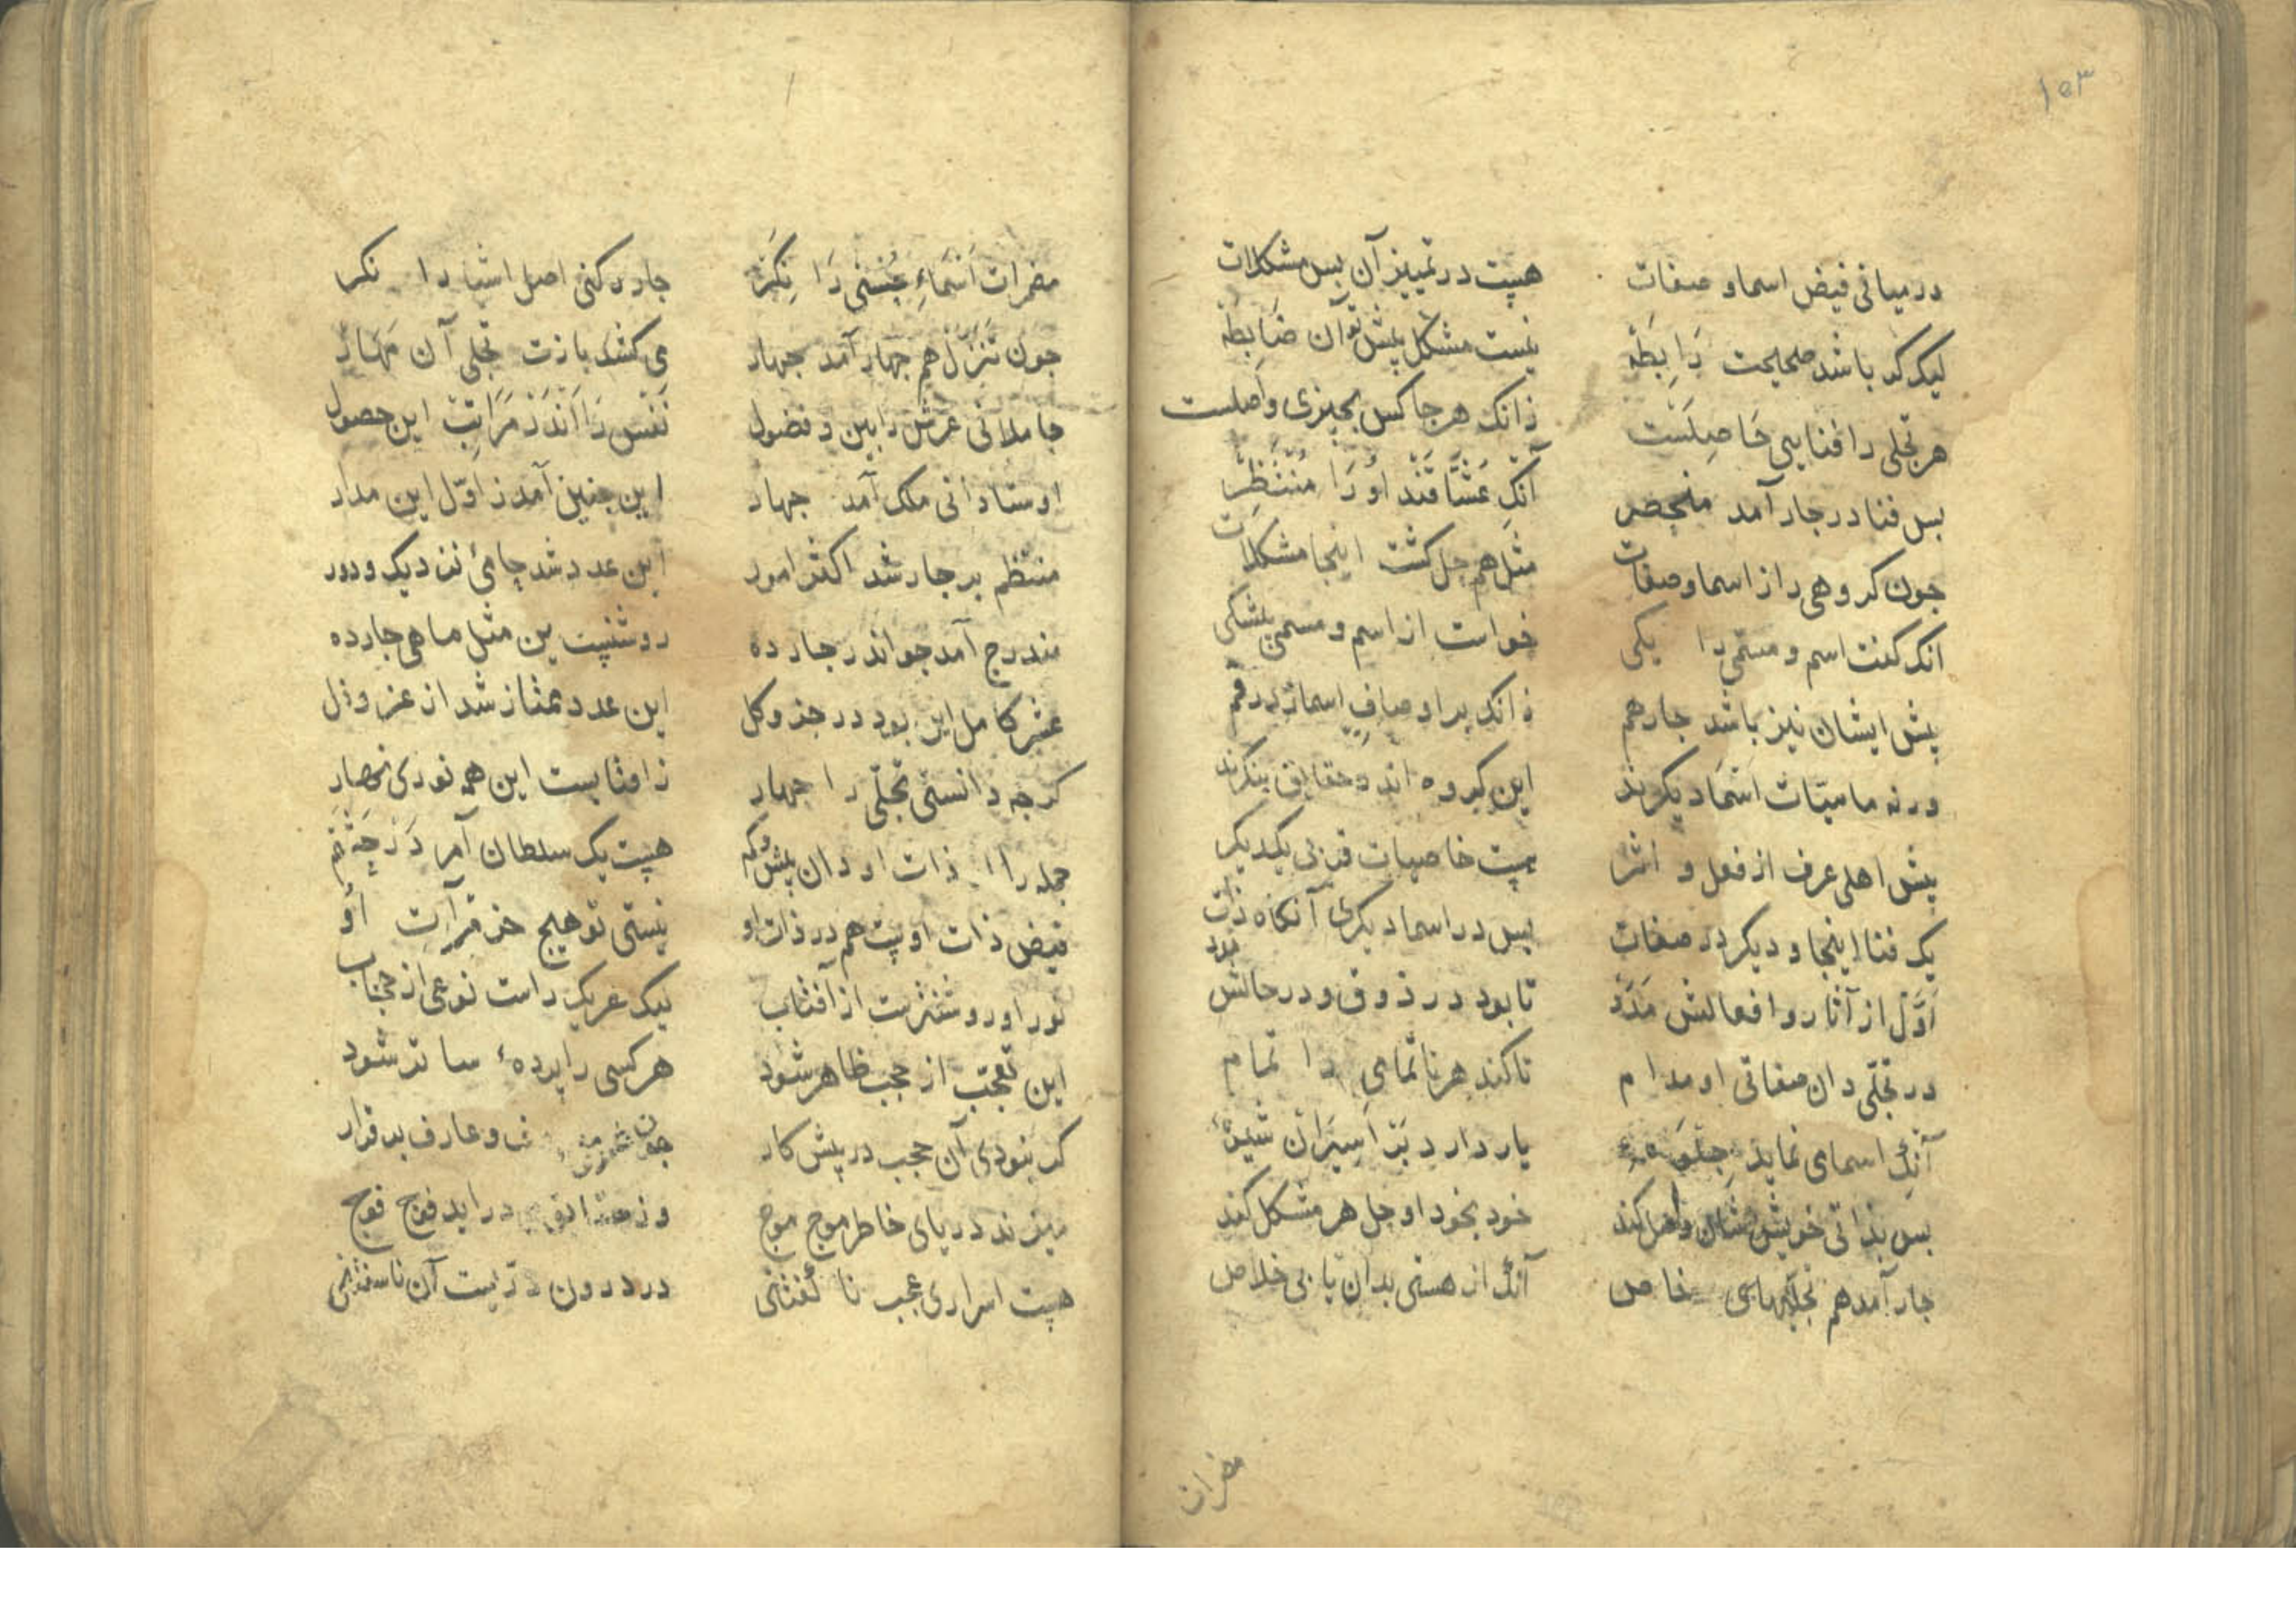 ۱۵۳
در میانی فیض اسما و صفات هست در تمییز آن بس مشکلات
لیک کر باشد صحیحت رابطه نیست مشکل پیش تو آن ضابطه
هر تجلی را فنایی حاصلست زانک هر جا کس بچیزی واصلست
بس فنا در جار آمد منحصر آنک عشاقند او را منتظر
جون کروهی را از اسما و صفات مثل هم حل کشت اینجا مشکلات
انک کفت اسم و مسمی را یکی خواست از اسم و مسمی بیشکی
پیش ایشان نیز باشد جار هم زانک بر اوصاف اسماء زد رقم
ورنه ماهیات اسما دیکرند این کروه اندر حقایق بنکرند
پیش اهل عرف از فعل و اثر هست خاصیات قربی یکدیکر
یک فنا اینجا و دیکر در صفات بس در اسما دیکری آنکاه ذات
اول از آثار و افعالش مدد تا بود در ذوق و در حالش بود
در تجلی دان صفاتی او مدام تا کند هر ناتمامی را تمام
آنک اسمای نماید جلوهٔ یار دارد بر اسیران شیوهٔ
بس بذاتی خویش شان واصل کند خود بخود او حل هر مشکل کند
جار آمد هم تجلیهای خاص آنک از هستی بدان یابی خلاص
مضمرات
مضمرات اسماء حسنی را نکر جار رکنی اصل اشیا را نکر
جون تنزل هم جهار آمد جهار می کشد بازت تجلی آن مهار
حاملانی عرش را بین و فضول نفس را اندر مراتب این حصول
اوستادانی ملک آمد جهار این جنین آمد ز اول این مدار
منتظم بر جار شد اکثر امور این عدد شد حامیٔ نزدیک و دور
مندرج آمد جو اندر جار ده روشنیست بین مثل ماهی جارده
عشر کامل این بود در جزو کل این عدد ممتاز شد از عز و ذل
کرجه دانستی تجلی را جهار ز افتابیست این همه نوری نهار
جمله را از ذات او دان بیش و کم هست یک سلطان آمر در حشم
فیض ذات اوست هم در ذات او نیستی تو هیج جز مرآت او
نور او روشنترست از آفتاب لیک هر یک راست نوعی از حجاب
این تعجب از حجب ظاهر شود هر کسی را پردهٔ ساتر شود
کر نبودی آن حجب در پیش کار جون و عارف بر قرار
میزند دریای خاطر موج موج وز حقایق در اید فوج فوج
هست اسراری عجب نا کفتنی در درون دریست آن ناسفتنی